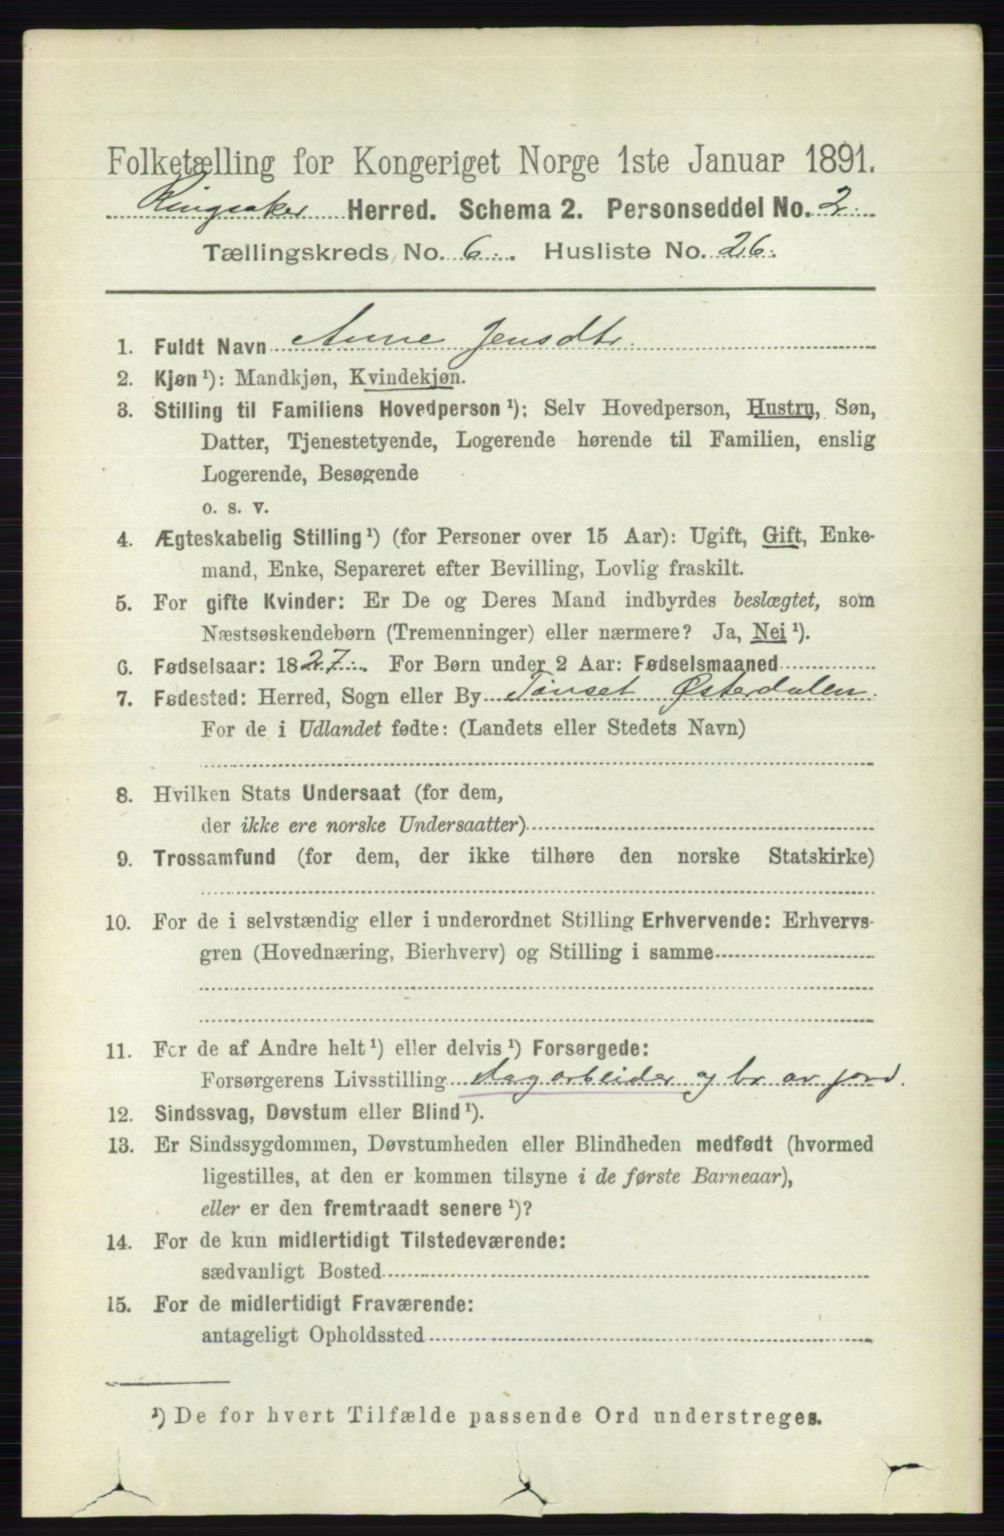 Folketælling for Kongeriget Norge 1ste Januar 1891.
Ringsaker Herred. Schema 2. Personseddel No. 2.
Tællingskreds No. 6. Husliste No. 26.
1. Fuldt Navn Anne Jensdtr.
2. Kjøn ¹): Mandkjøn, Kvindekjøn.
3. Stilling til Familiens Hovedperson ¹): Selv Hovedperson, Hustru, Søn,
Datter, Tjenestetyende, Logerende hørende til Familien, enslig
Logerende, Besøgende
o. s. v.
4. Ægteskabelig Stilling ¹) (for Personer over 15 Aar): Ugift, Gift, Enke-
mand, Enke, Separeret efter Bevilling, Lovlig fraskilt.
5. For gifte Kvinder: Er De og Deres Mand indbyrdes beslægtet, som
Næstsøskendebørn (Tremenninger) eller nærmere? Ja, Nei ¹).
6. Fødselsaar: 1827. For Børn under 2 Aar: Fødselsmaaned
7. Fødested: Herred, Sogn eller By Tønset Østerdalen.
For de i Udlandet fødte: (Landets eller Stedets Navn)
8. Hvilken Stats Undersaat (for dem,
der ikke ere norske Undersaatter)
9. Trossamfund (for dem, der ikke tilhøre den norske Statskirke)
10. For de i selvstændig eller i underordnet Stilling Erhvervende: Erhvervs-
gren (Hovednæring, Bierhverv) og Stilling i samme
11. For de af Andre helt ¹) eller delvis ¹) Forsørgede:
Forsørgerens Livsstilling dagarbeider og br av jord.
12. Sindssvag, Døvstum eller Blind ¹).
13. Er Sindssygdommen, Døvstumheden eller Blindheden medfødt (hvormed
ligestilles, at den er kommen tilsyne i de første Barneaar),
eller er den fremtraadt senere ¹)?
14. For de kun midlertidigt Tilstedeværende:
sædvanligt Bosted
15. For de midlertidigt Fraværende:
antageligt Opholdssted
¹) De for hvert Tilfælde passende Ord understreges.